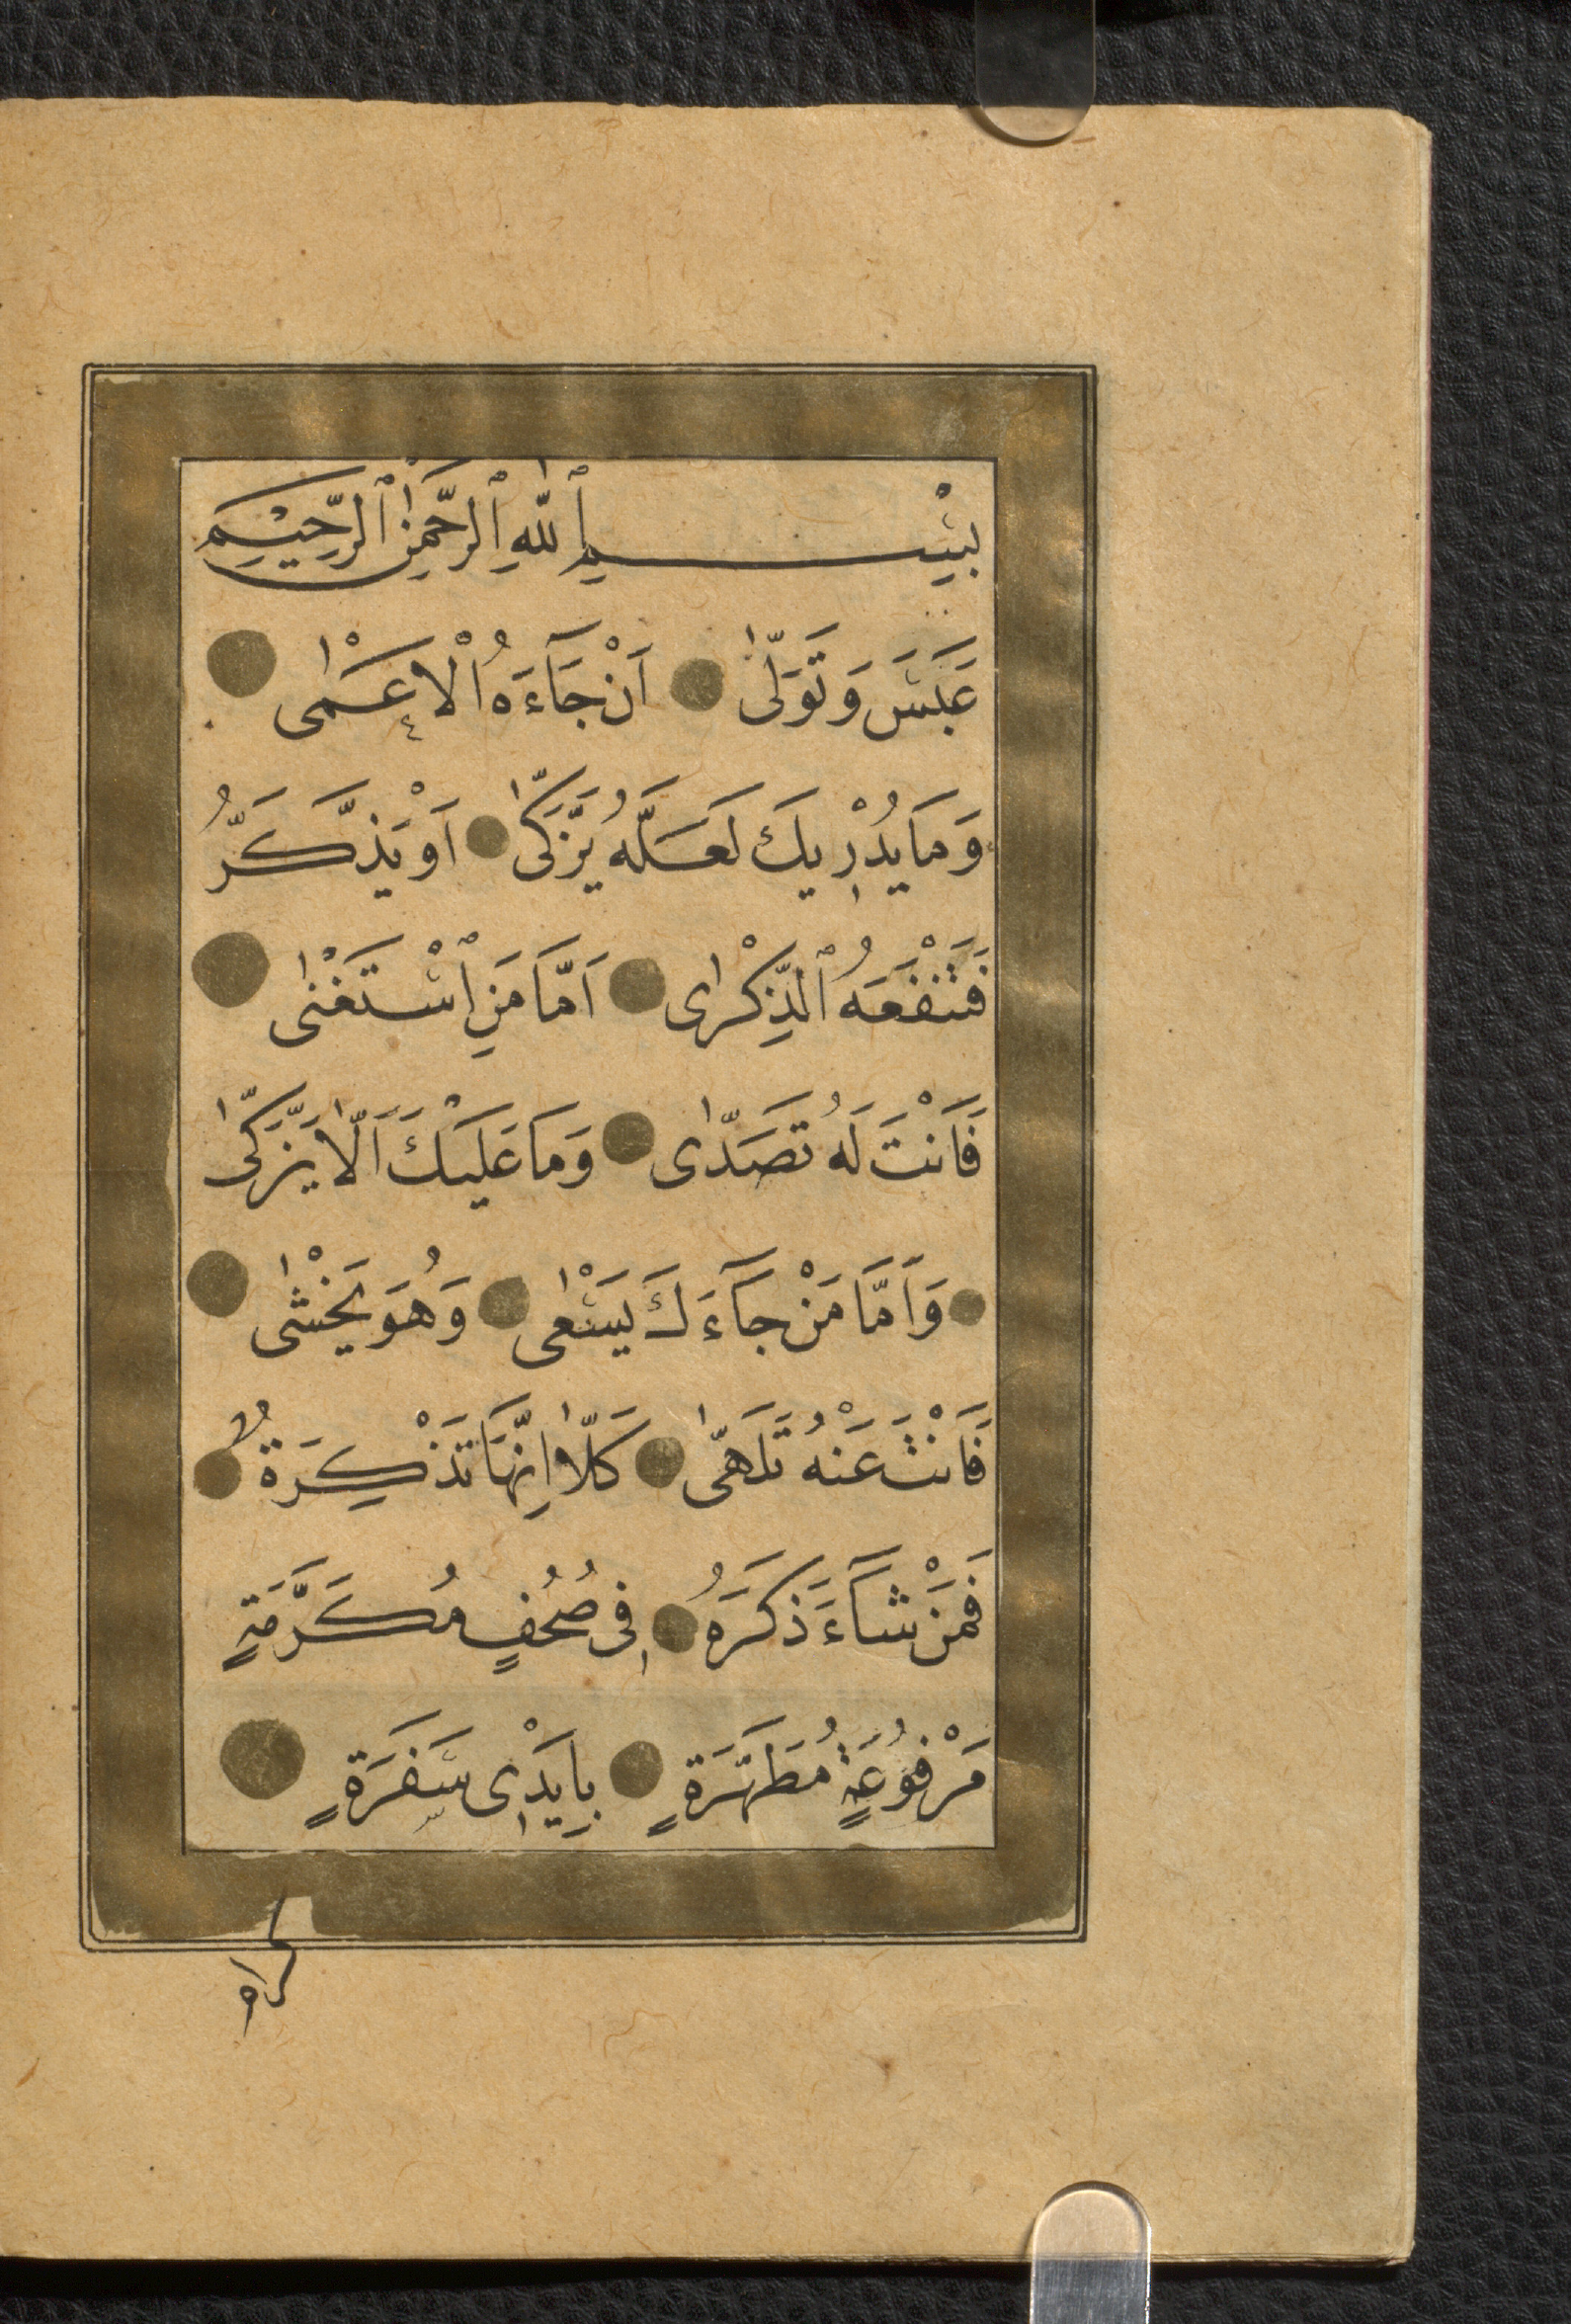 بِسْمِ ٱللّٰهِ ٱلرَّحْمٰنِ ٱلرَّحِيْمِ
عَبَسَ وَتَوَلّٰى اَنْ جَآءَهُ الْاَعْمٰى
وَمَا يُدْرِيكَ لَعَلَّهُ يَزَّكّٰى اَوْ يَذَّكَّرُ
فَتَنْفَعَهُ ٱلذِّكْرٰى اَمَّا مَنِ ٱسْتَغْنٰى
فَاَنْتَ لَهُ تَصَدّٰى وَمَا عَلَيْكَ اَلّٰا يَزَّكّٰى
وَاَمَّا مَنْ جَآءَكَ يَسْعٰى وَهُوَ يَخْشٰى
فَاَنْتَ عَنْهُ تَلَهّٰى كَلّٰا اِنَّهَا تَذْكِرَةٌ
فَمَنْ شَآءَ ذَكَرَهُ فِى صُحُفٍ مُكَرَّمَةٍ
مَرْفُوعَةٍ مُطَهَّرَةٍ بِاَيْدِى سَفَرَةٍ
كرام